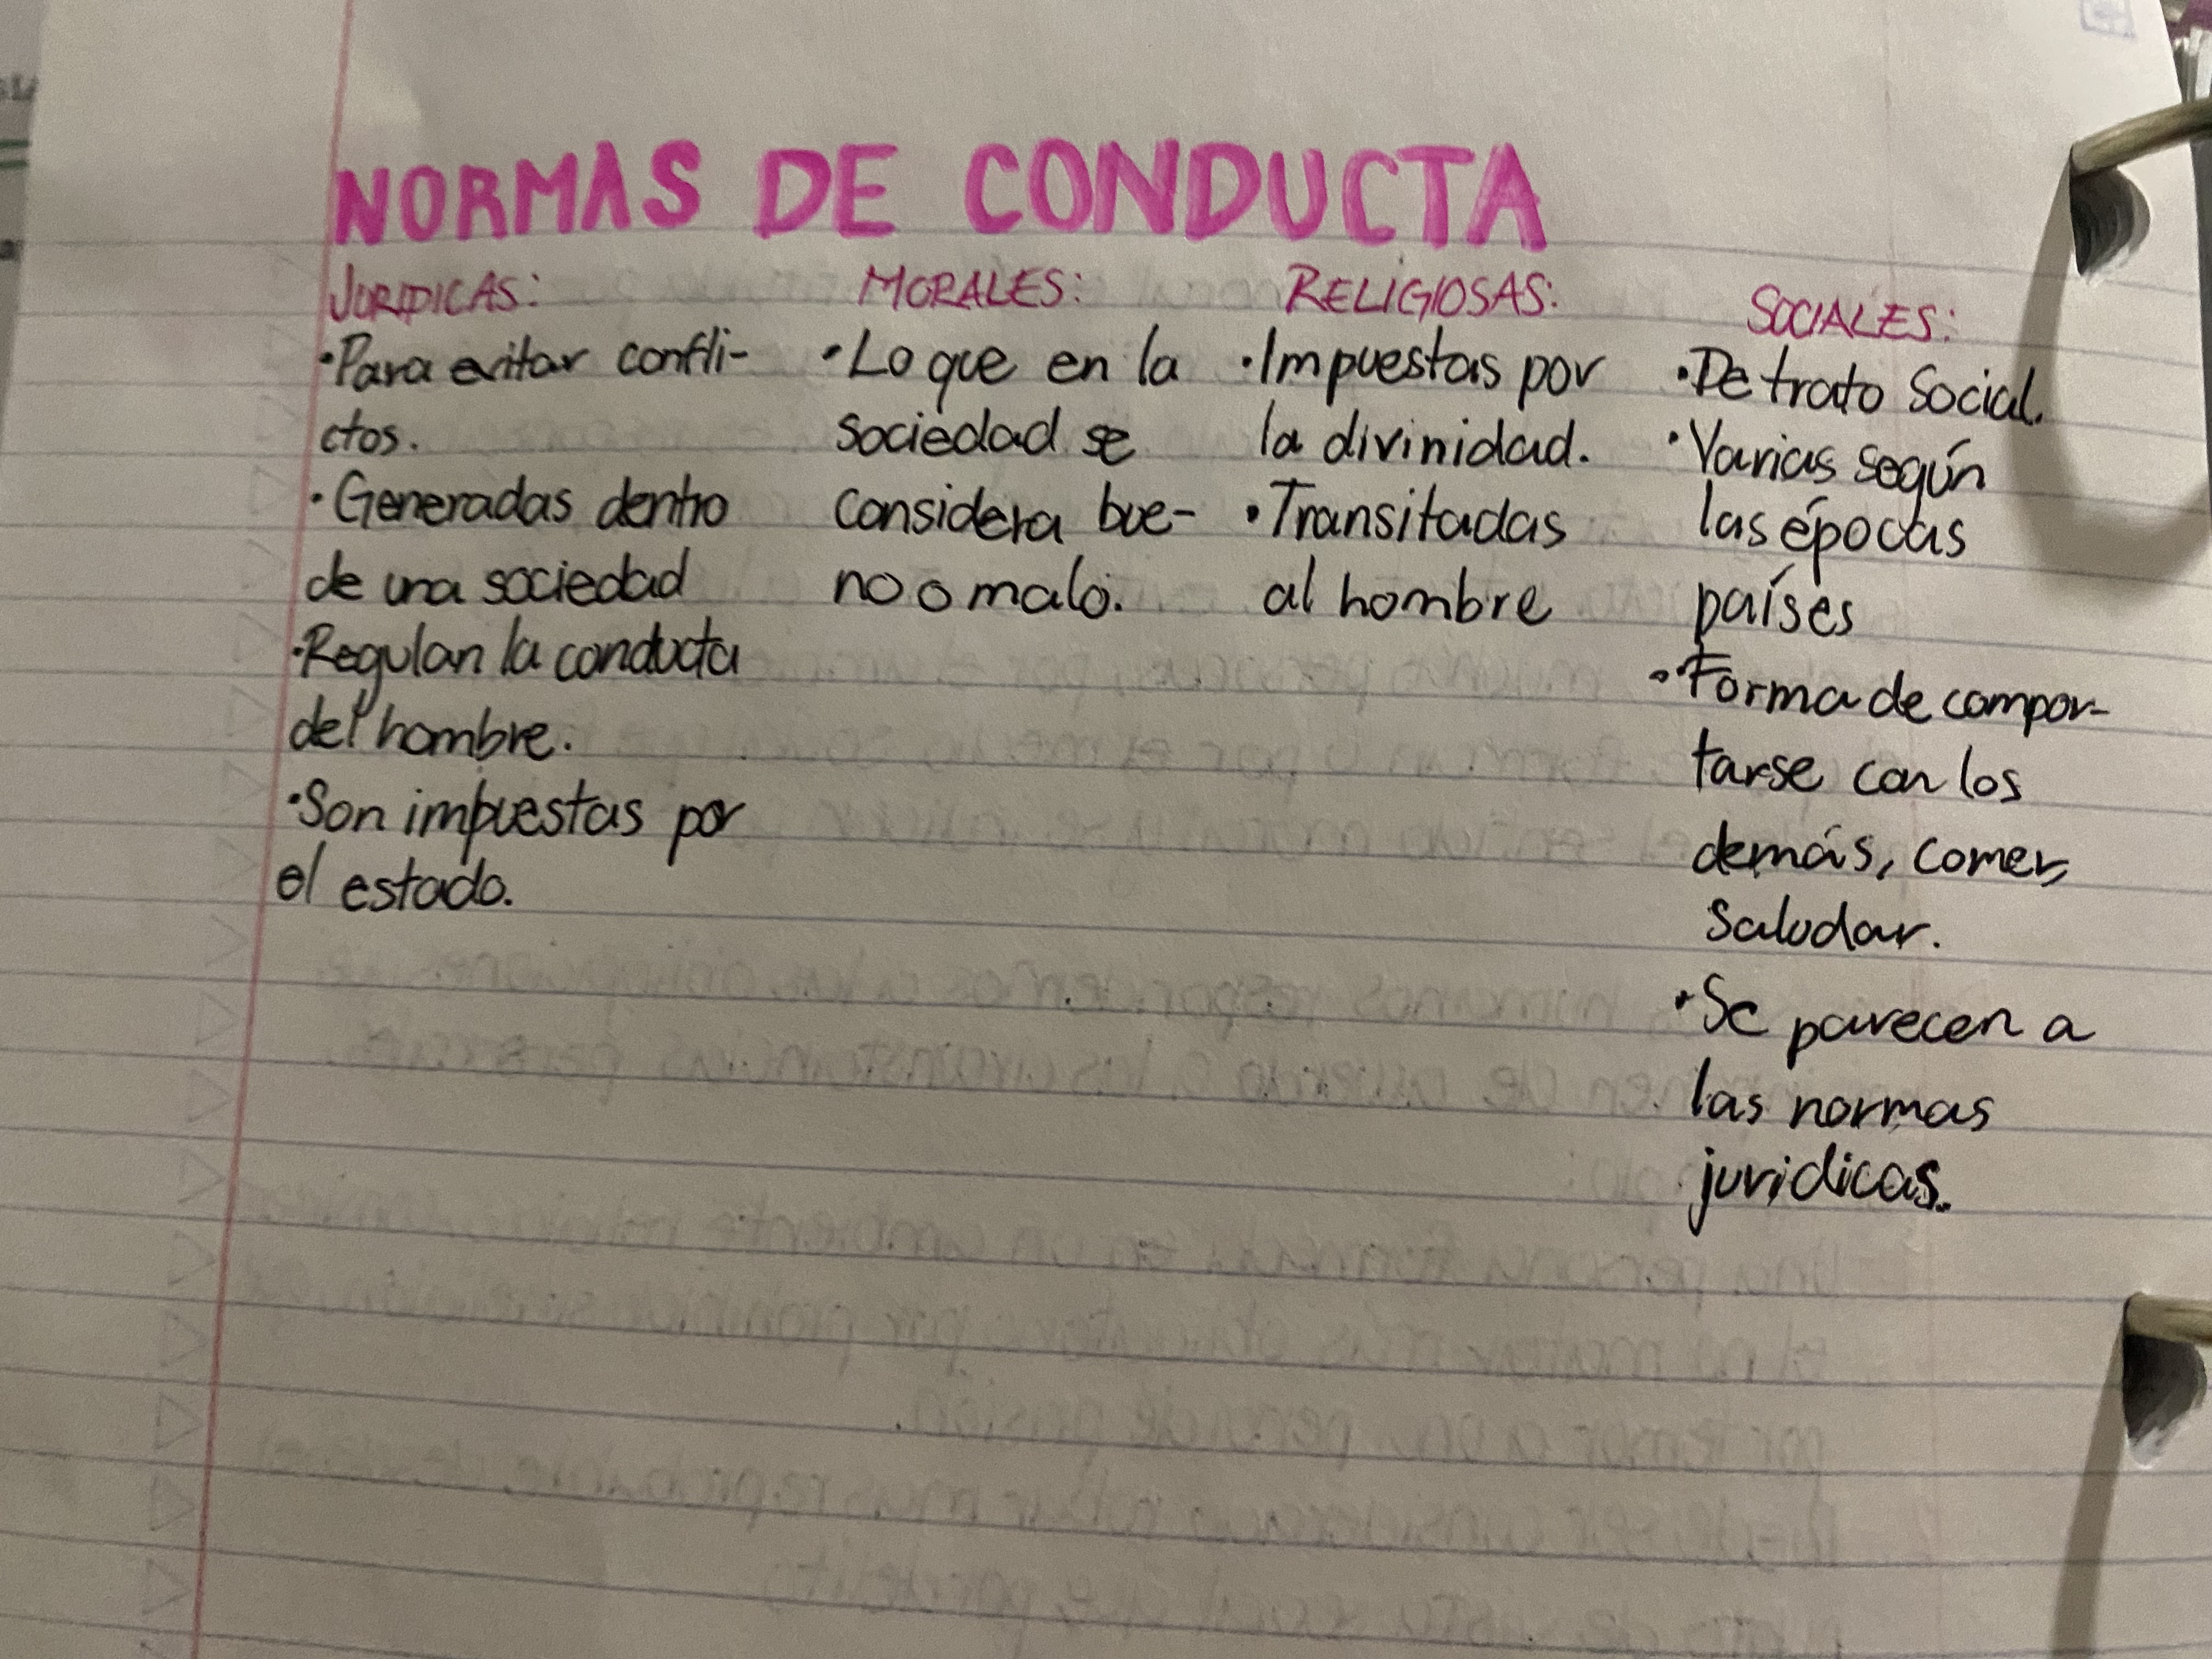 NORMAS DE CONDUCTA
JURIDICAS:
•Para evitar confli-
ctos.
•Generadas dentro
de una sociedad
•Regulan la conducta
del hombre.
•Son impuestas por
el estado.
MORALES:
•Lo que en la
sociedad se
considera bue-
no o malo.
RELIGIOSAS:
•Impuestas por
la divinidad.
•Transitadas
al hombre
SOCIALES:
•De trato Social.
•Varias según
las épocas
países
•Forma de compor-
tarse con los
demás, comer,
Saludar.
•Se parecen a
las normas
juridicas.